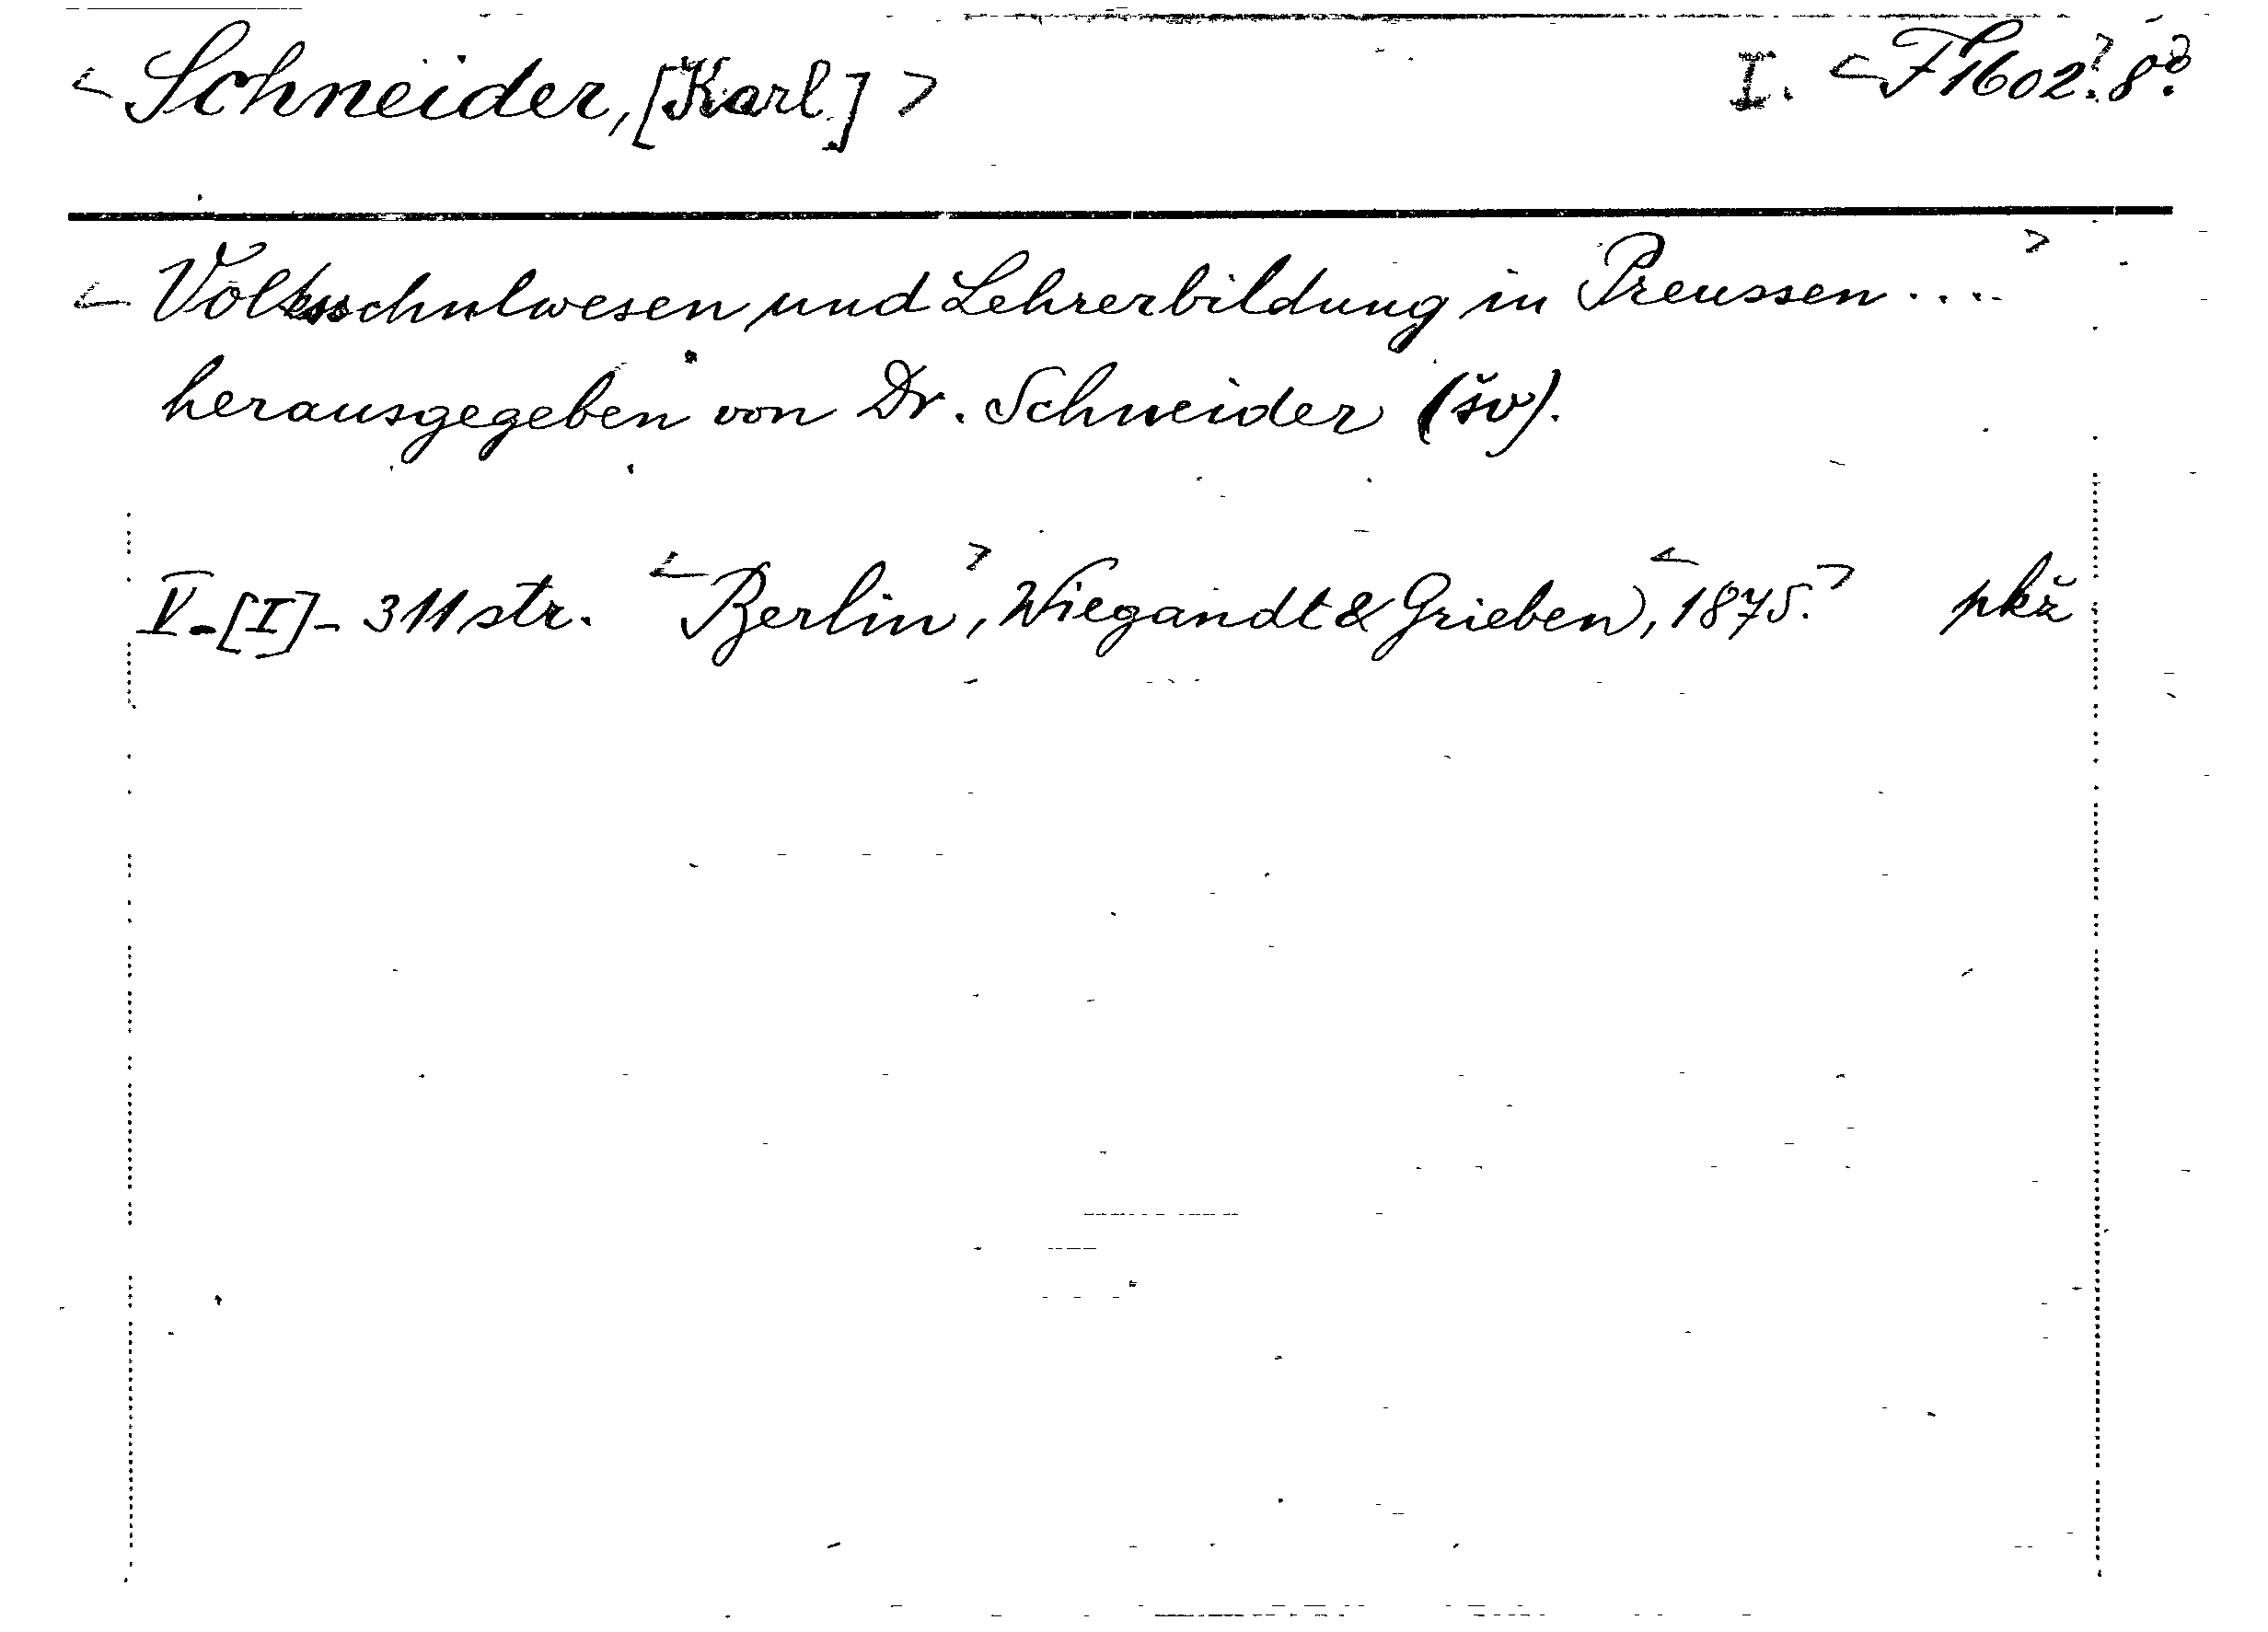 < Schneider, [Karl] > I. < F 1602. > 8º.
< Volksschulwesen und Lehrerbildung in Preussen .... >
herausgegeben von Dr. Schneider (šv).
V-[I]- 311 str. < Berlin >, Wiegandt & Grieben, < 1875. > pkž